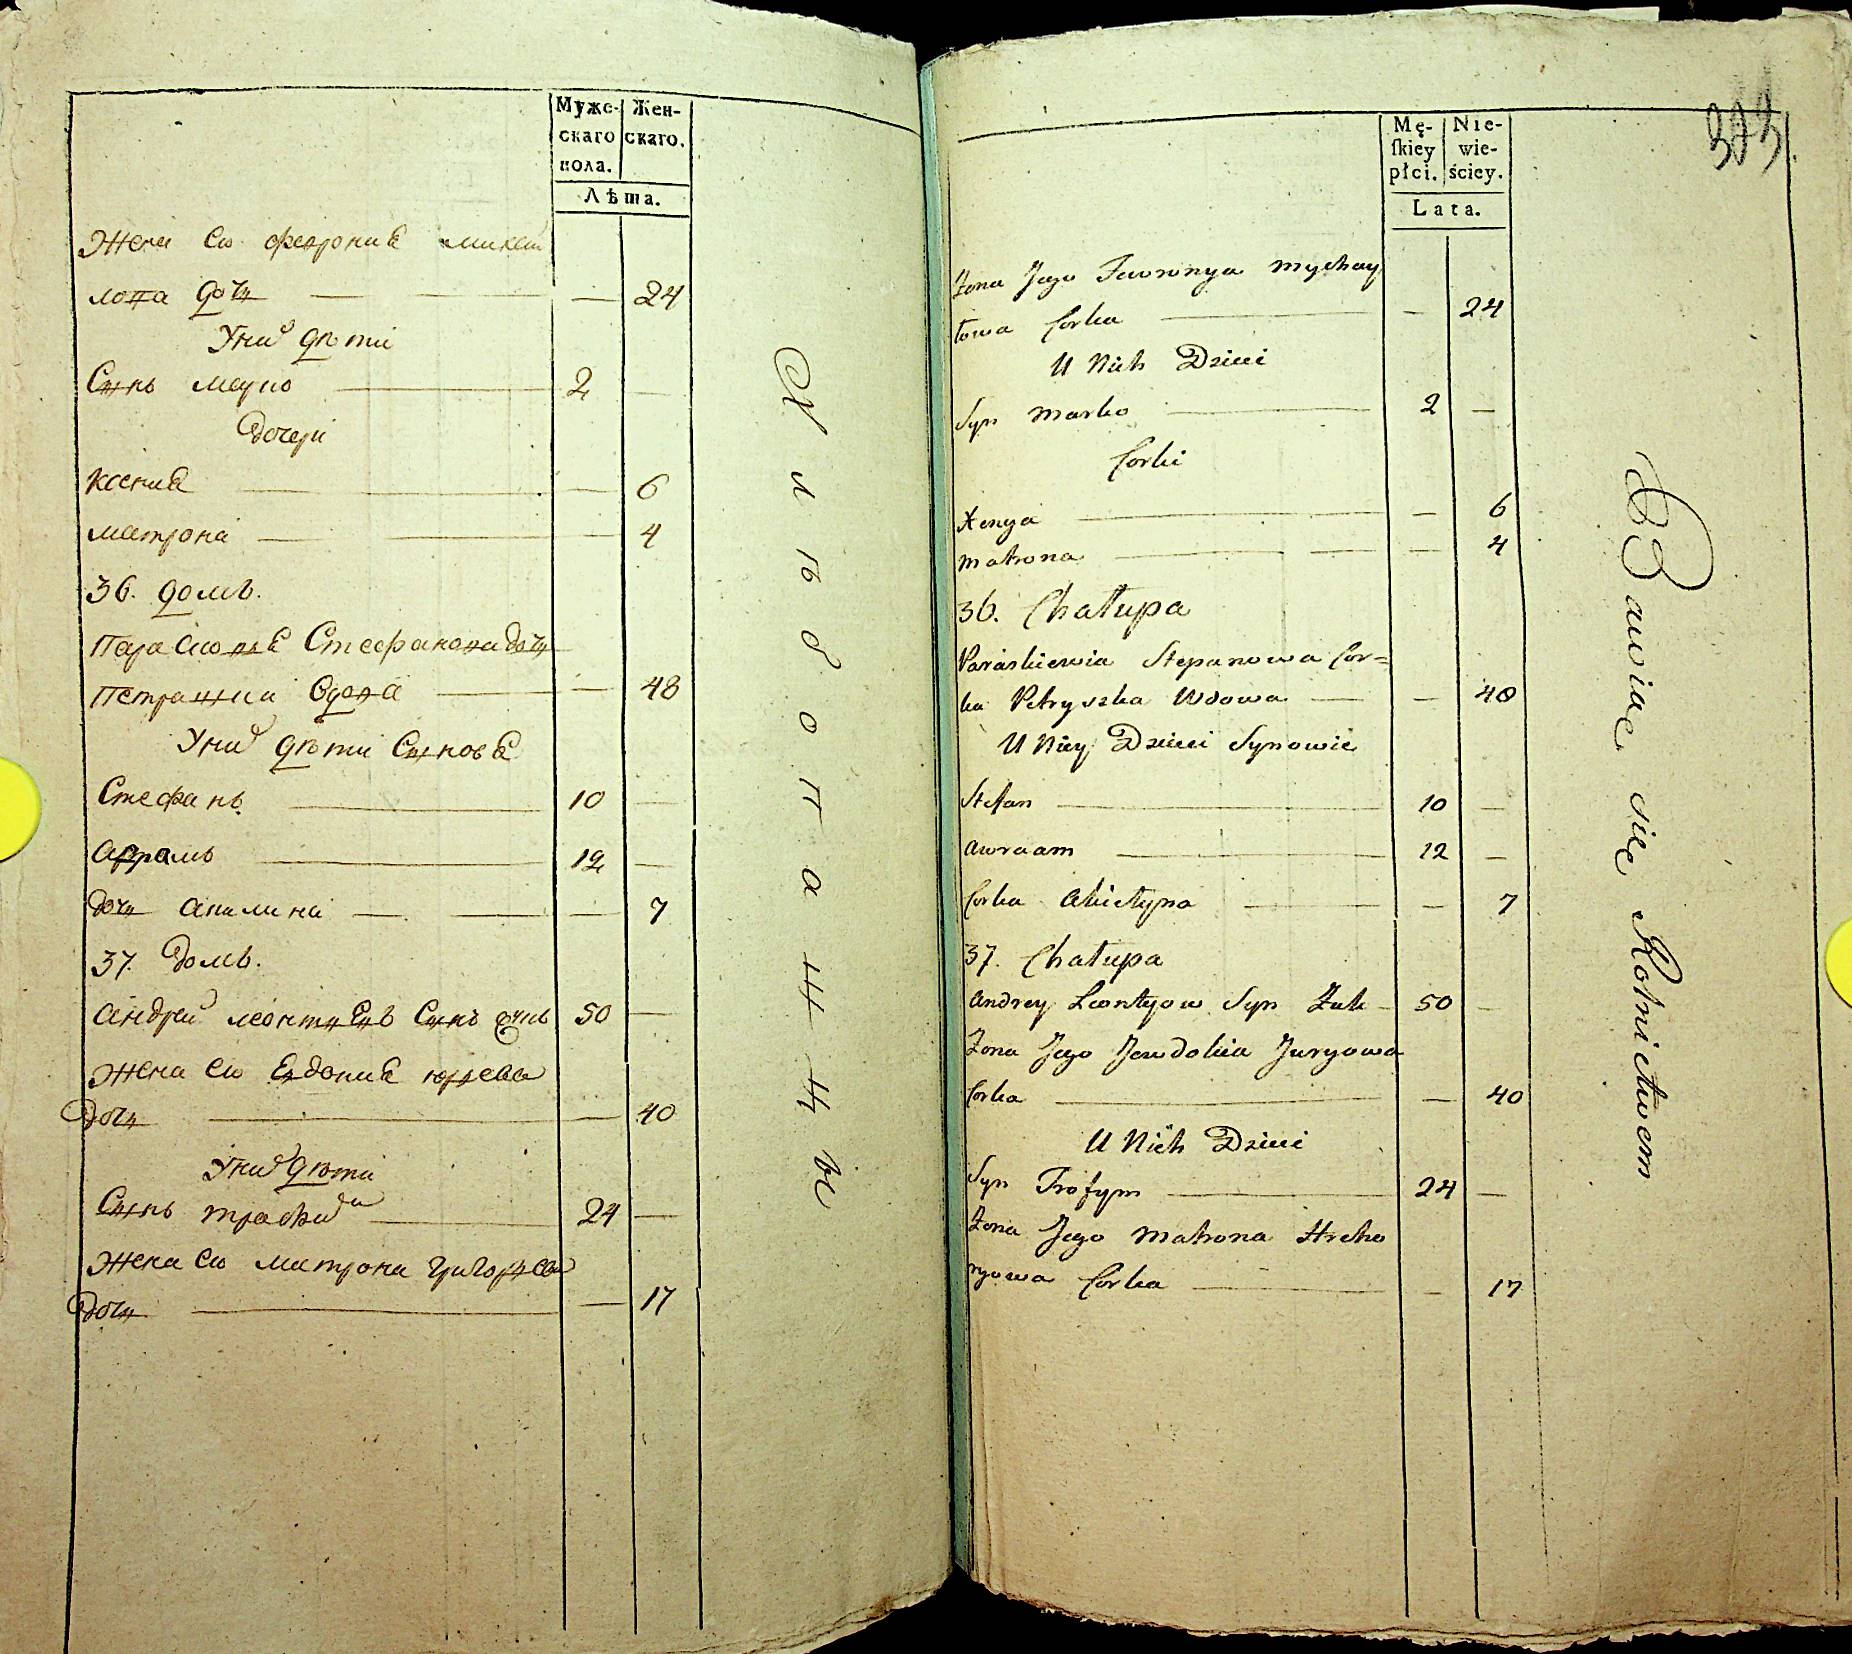 Муже-
скаго
пола.
Жен-
скаго.
Лѣта.
Жена его Феврониа михай
лова дочь — 24
У них дѣти
Сынъ марко — 2 —
дочери
Ксения — 6
матрона — 4
36. домъ.
Параскивиа Стефанова дочь
Петрашка вдова — 48
У ней дѣти Сыновья
Стефанъ — 10 —
Аврамъ — 12 —
дочь Акилина — 7
37. домъ.
Андрей леонтьевъ Сынъ 50 —
Жена его Евдокия юрьева
дочь — 40
У них дѣти
Сынъ трофим — 24 —
Жена его матрона григорьева
дочь — 17
Хлѣбопашцы
303.
Mę-
skiey
płci.
Nie-
wie-
ściey.
Lata.
Żona Jego Fewronya Mychay
łowa Corka — 24
U Nich Dzieci
Syn Marko — 2 —
Corki
Xenya — 6
Matrona — 4
36. Chałupa
Paraskiewia Stepanowa Cor=
ka Petryszka Wdowa — 48
U Niey Dzieci Synowie
Stefan — 10 —
Awraam — 12 —
Corka Akielyna — 7
37. Chałupa
Andrey Leontyow Syn Żuk — 50 —
Żona Jego Jewdokia Juryowa
Corka — 40
U Nich Dzieci
Syn Trofym — 24 —
Żona Jego Matrona Hreho
ryowa Corka — 17
Bawiąc się Rolnictwem